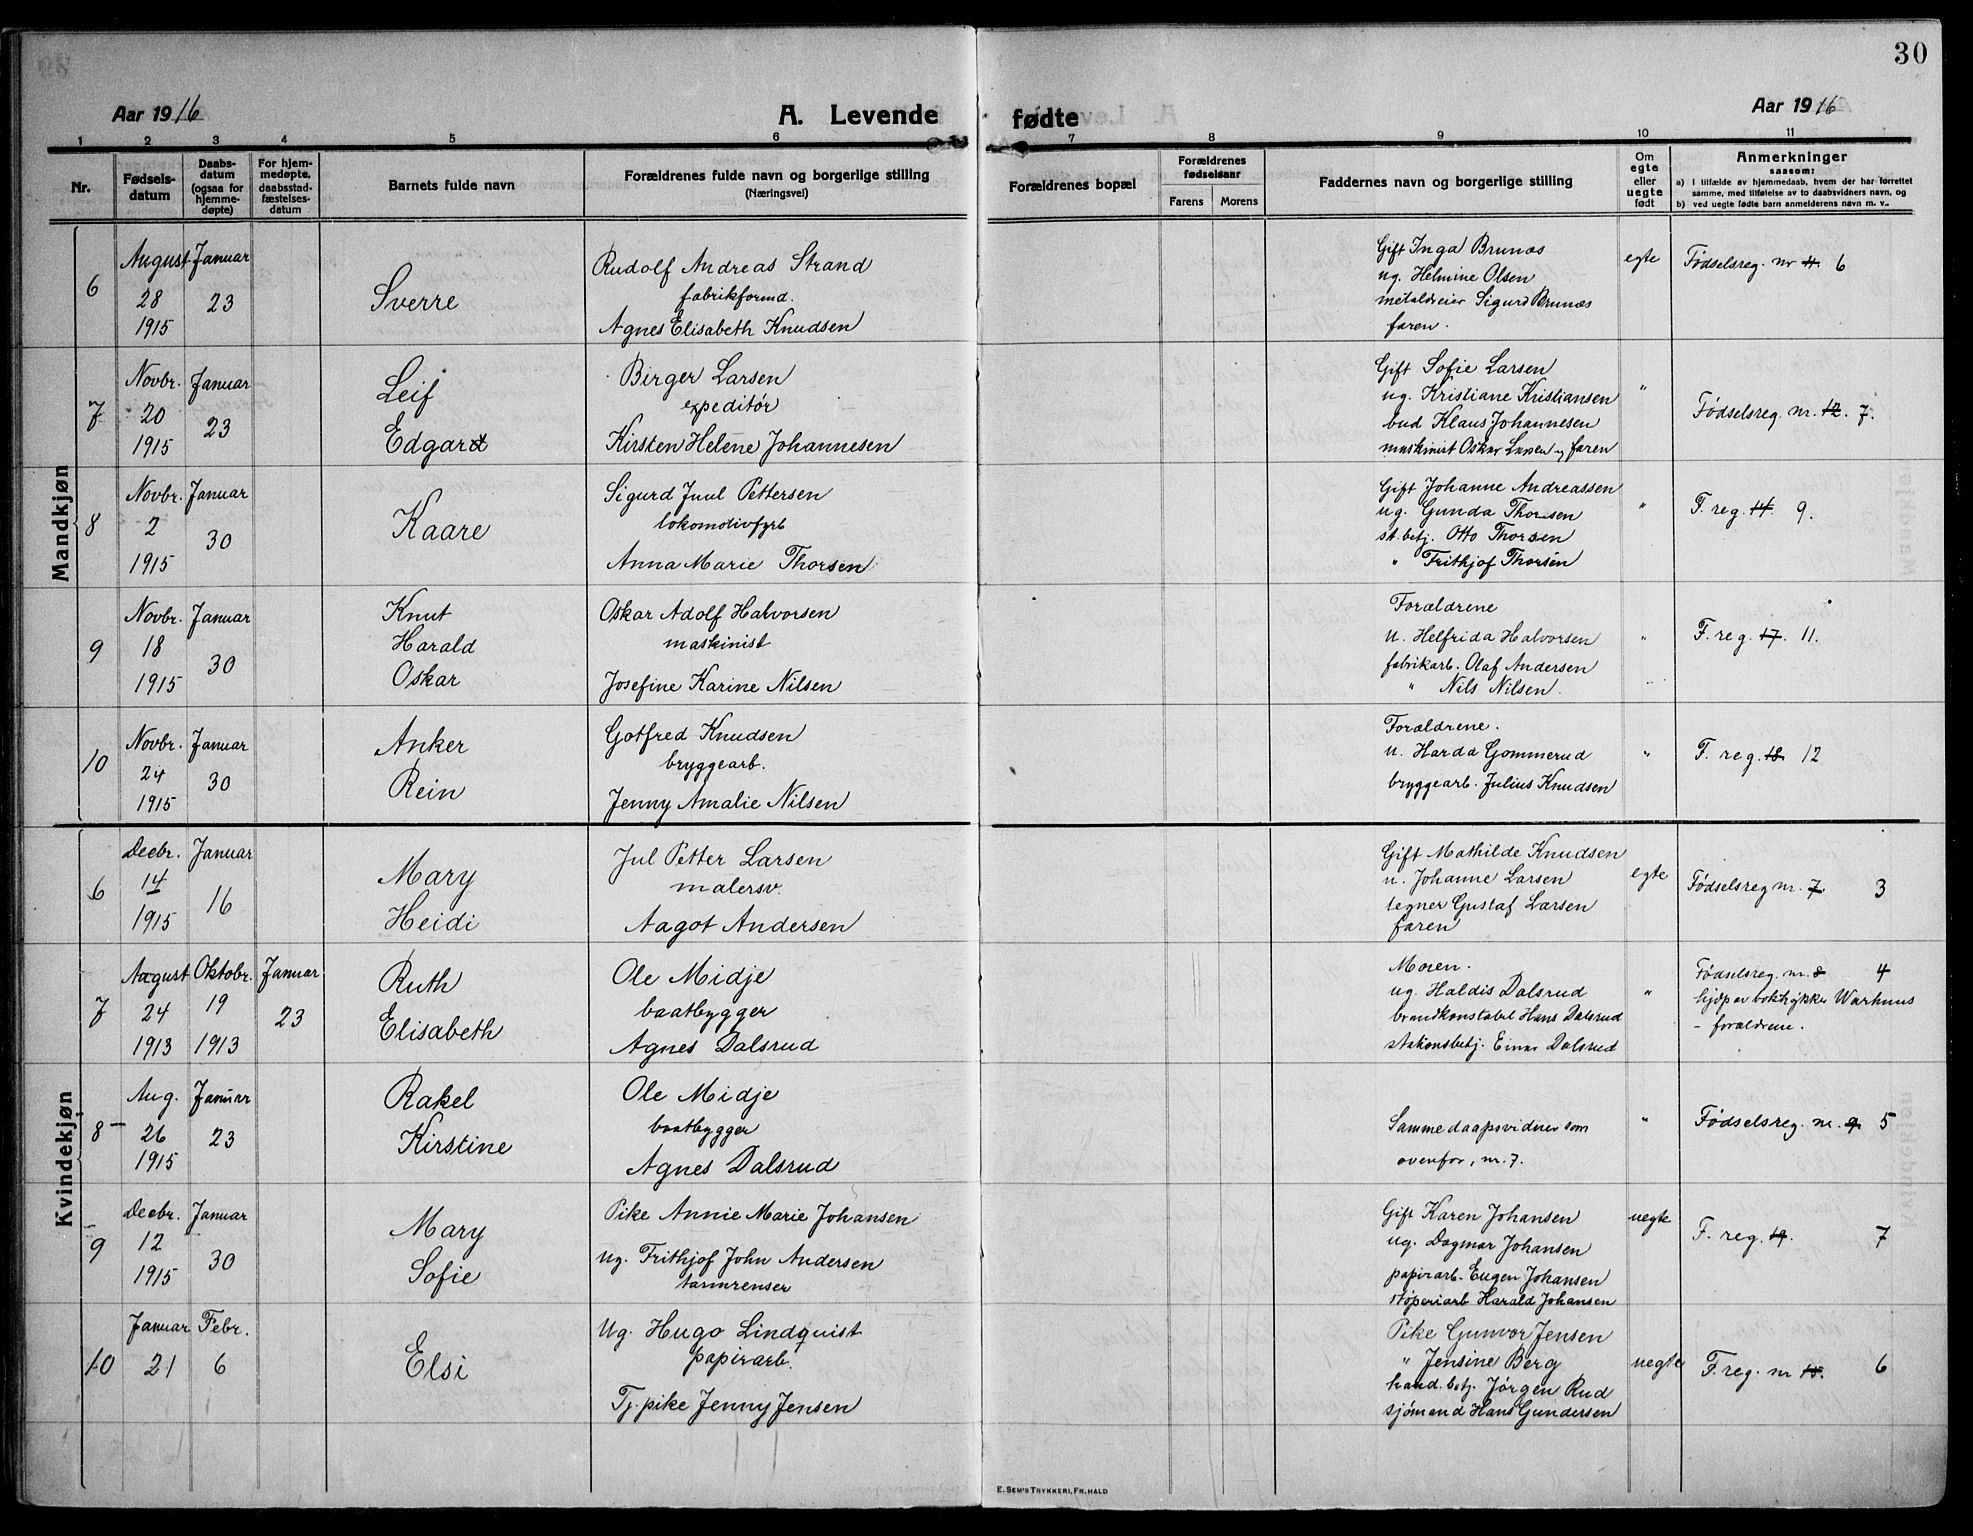 30
Aar 1916
A. Levende
fødte
Aar 1916
1 2 3 4 5 6 7 8 9 10 11
Nr.
Fødsels-
datum
Daabs-
datum
(ogsaa for
hjemme-
døpte)
For hjem-
medøpte,
daabsstad-
fæstelses-
datum
Barnets fulde navn
Forældrenes fulde navn og borgerlige stilling
(Næringsvei)
Forældrenes bopæl
Forældrenes
fødselsaar
Farens
Morens
Faddernes navn og borgerlige stilling
Om
egte
eller
uegte
født
Anmerkninger
saasom:
a) I tilfælde av hjemmedaab, hvem der har forrettet
samme, med tilføielse av to daabsvidners navn, og
b) ved uegte fødte barn anmelderens navn m. v..
Mandkjøn
6
August
28
1915
Januar
23
Sverre
Rudolf Andreas Strand
fabrikformd.
Agnes Elisabeth Knudsen
Gift Inga Brunæs
ug. Helmine Olsen
metaldreier Sigurd Brunæs
faren.
egte
Fødselsreg. nr 11. 6
7
Novbr.
20
1915
Januar
23
Leif
Edgard
Birger Larsen
expeditør
Kirsten Helene Johannesen
Gift Sofie Larsen
ug. Kristiane Kristiansen
bud Klaus Johannesen
maskinist Oskar Larsen og faren
"
Fødselsreg. nr. 12. 7.
8
Novbr.
2
1915
Januar
30
Kaare
Sigurd Juul Pettersen
lokomotivfyrb
Anna Marie Thorsen
Gift Johanne Andreassen
ug. Gunda Thorsen
st. betj. Otto Thorsen
" Frithjof Thorsen
"
F. reg. 14. 9.
9
Novbr.
18
1915
Januar
30
Knut
Harald
Oskar
Oskar Adolf Halvorsen
maskinist
Josefine Karine Nilsen
Forældrene
u. Helfrida Halvorsen
fabrikarb. Olaf Andersen
" Nils Nilsen.
"
F. reg. 17. 11.
10
Novbr.
24
1915
Januar
30
Anker
Rein
Gotfred Knudsen
bryggearb.
Jenny Amalie Nilsen
Forældrene.
u. Harda Gommerud
bryggearb. Julius Knudsen
"
F. reg. 18. 12
Kvindekjøn
6
Decbr.
14
1915
Januar
16
Mary
Heidi
Jul Petter Larsen
malersv.
Aagot Andersen
Gift Mathilde Knudsen
u. Johanne Larsen
tegner Gustaf Larsen
faren
egte
Fødselsreg nr. 7. 3
7
August
24
1913
Oktobr.
19
1913
Januar
23
Ruth
Elisabeth
Ole Midje
baatbygger
Agnes Dalsrud
Moren.
ug. Haldis Dalsrud
brandkonstabel Hans Dalsrud
stationsbetj. Einar Dalsrud
"
Fødselsreg. nr. 8 4
hj.døp av boktrykker Warhuus
- forældrene.
8
Aug.
26
1915
Januar
23
Rakel
Kirstine
Ole Midje
baatbygger
Agnes Dalsrud
Samme daapsvidner som
ovenfor, nr. 7.
"
Fødselsreg. nr. 9 5
9
Decbr.
12
1915
Januar
30
Mary
Sofie
Pike Annie Marie Johansen
Ug. Frithjof John Andersen
tarmrenser
Gift Karen Johansen
ug. Dagmar Johansen
papirarb. Eugen Johansen
støperiarb Harald Johansen
uegte
F. reg. 19. 7
10
Januar
21
Febr.
6
Elsi
Ug. Hugo Lindqvist
papirarb.
Tj. pike Jenny Jensen
Pike Gunvor Jensen
" Jensine Berg
hand. betj. Jørgen Rud
sjømand Hans Gundersen
uegte
F. reg. nr 15. 6
E. SEM'S TRYKKERI, FR.HALD